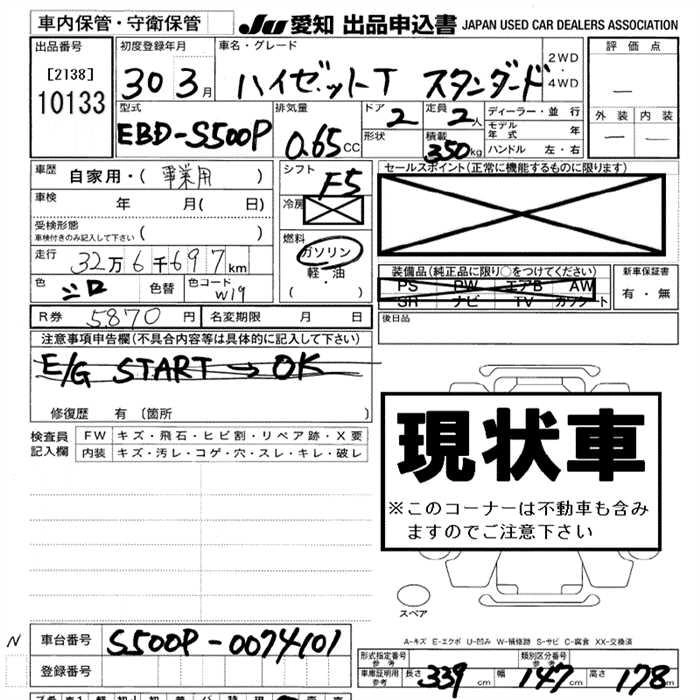 車内保管・守衛保管
JU 愛知 出品申込書 JAPAN USED CAR DEALERS ASSOCIATION
出品番号
[2138]
10133
初度登録年月
30 3月
車名・グレード
ハイゼットT スタンダード
2WD
・
4WD
評価点
—
外装 内装
— —
型式
EBD-S500P
排気量
0.65 CC
ドア 2
形状
定員 2人
積載 350kg
ディーラー・並行
モデル年式 年
ハンドル 左・右
車歴 自家用・( 事業用 )
車検 年 月( 日)
受検形態
車検付きのみ記入して下さい ( )
走行 32万6千697km
色 シロ 色替 色コード W19
シフト F5
冷房
燃料
ガソリン
軽・油
( ・ )
セールスポイント(正常に機能するものに限ります)
装備品(純正品に限り○をつけてください)
PS PW エアB AW
SR ナビ TV カワシート
新車保証書
有・無
R券 5870円 名変期限 月 日
後日品
注意事項申告欄(不具合内容等は具体的に記入して下さい)
E/G START → OK
修復歴 有 〔箇所 〕
検査員記入欄
FW キズ・飛石・ヒビ割・リペア跡・X要
内装 キズ・汚レ・コゲ・穴・スレ・キレ・破レ
現状車
※このコーナーは不動車も含み
ますのでご注意下さい
スペア
A-キズ E-エクボ U-凹み W-補修跡 S-サビ C-腐食 XX-交換済
N 車台番号 S500P-0074101
登録番号
形式指定番号
参考
類別区分番号
参考
車庫証明用
参考
長さ 339cm 幅 147cm 高さ 178cm